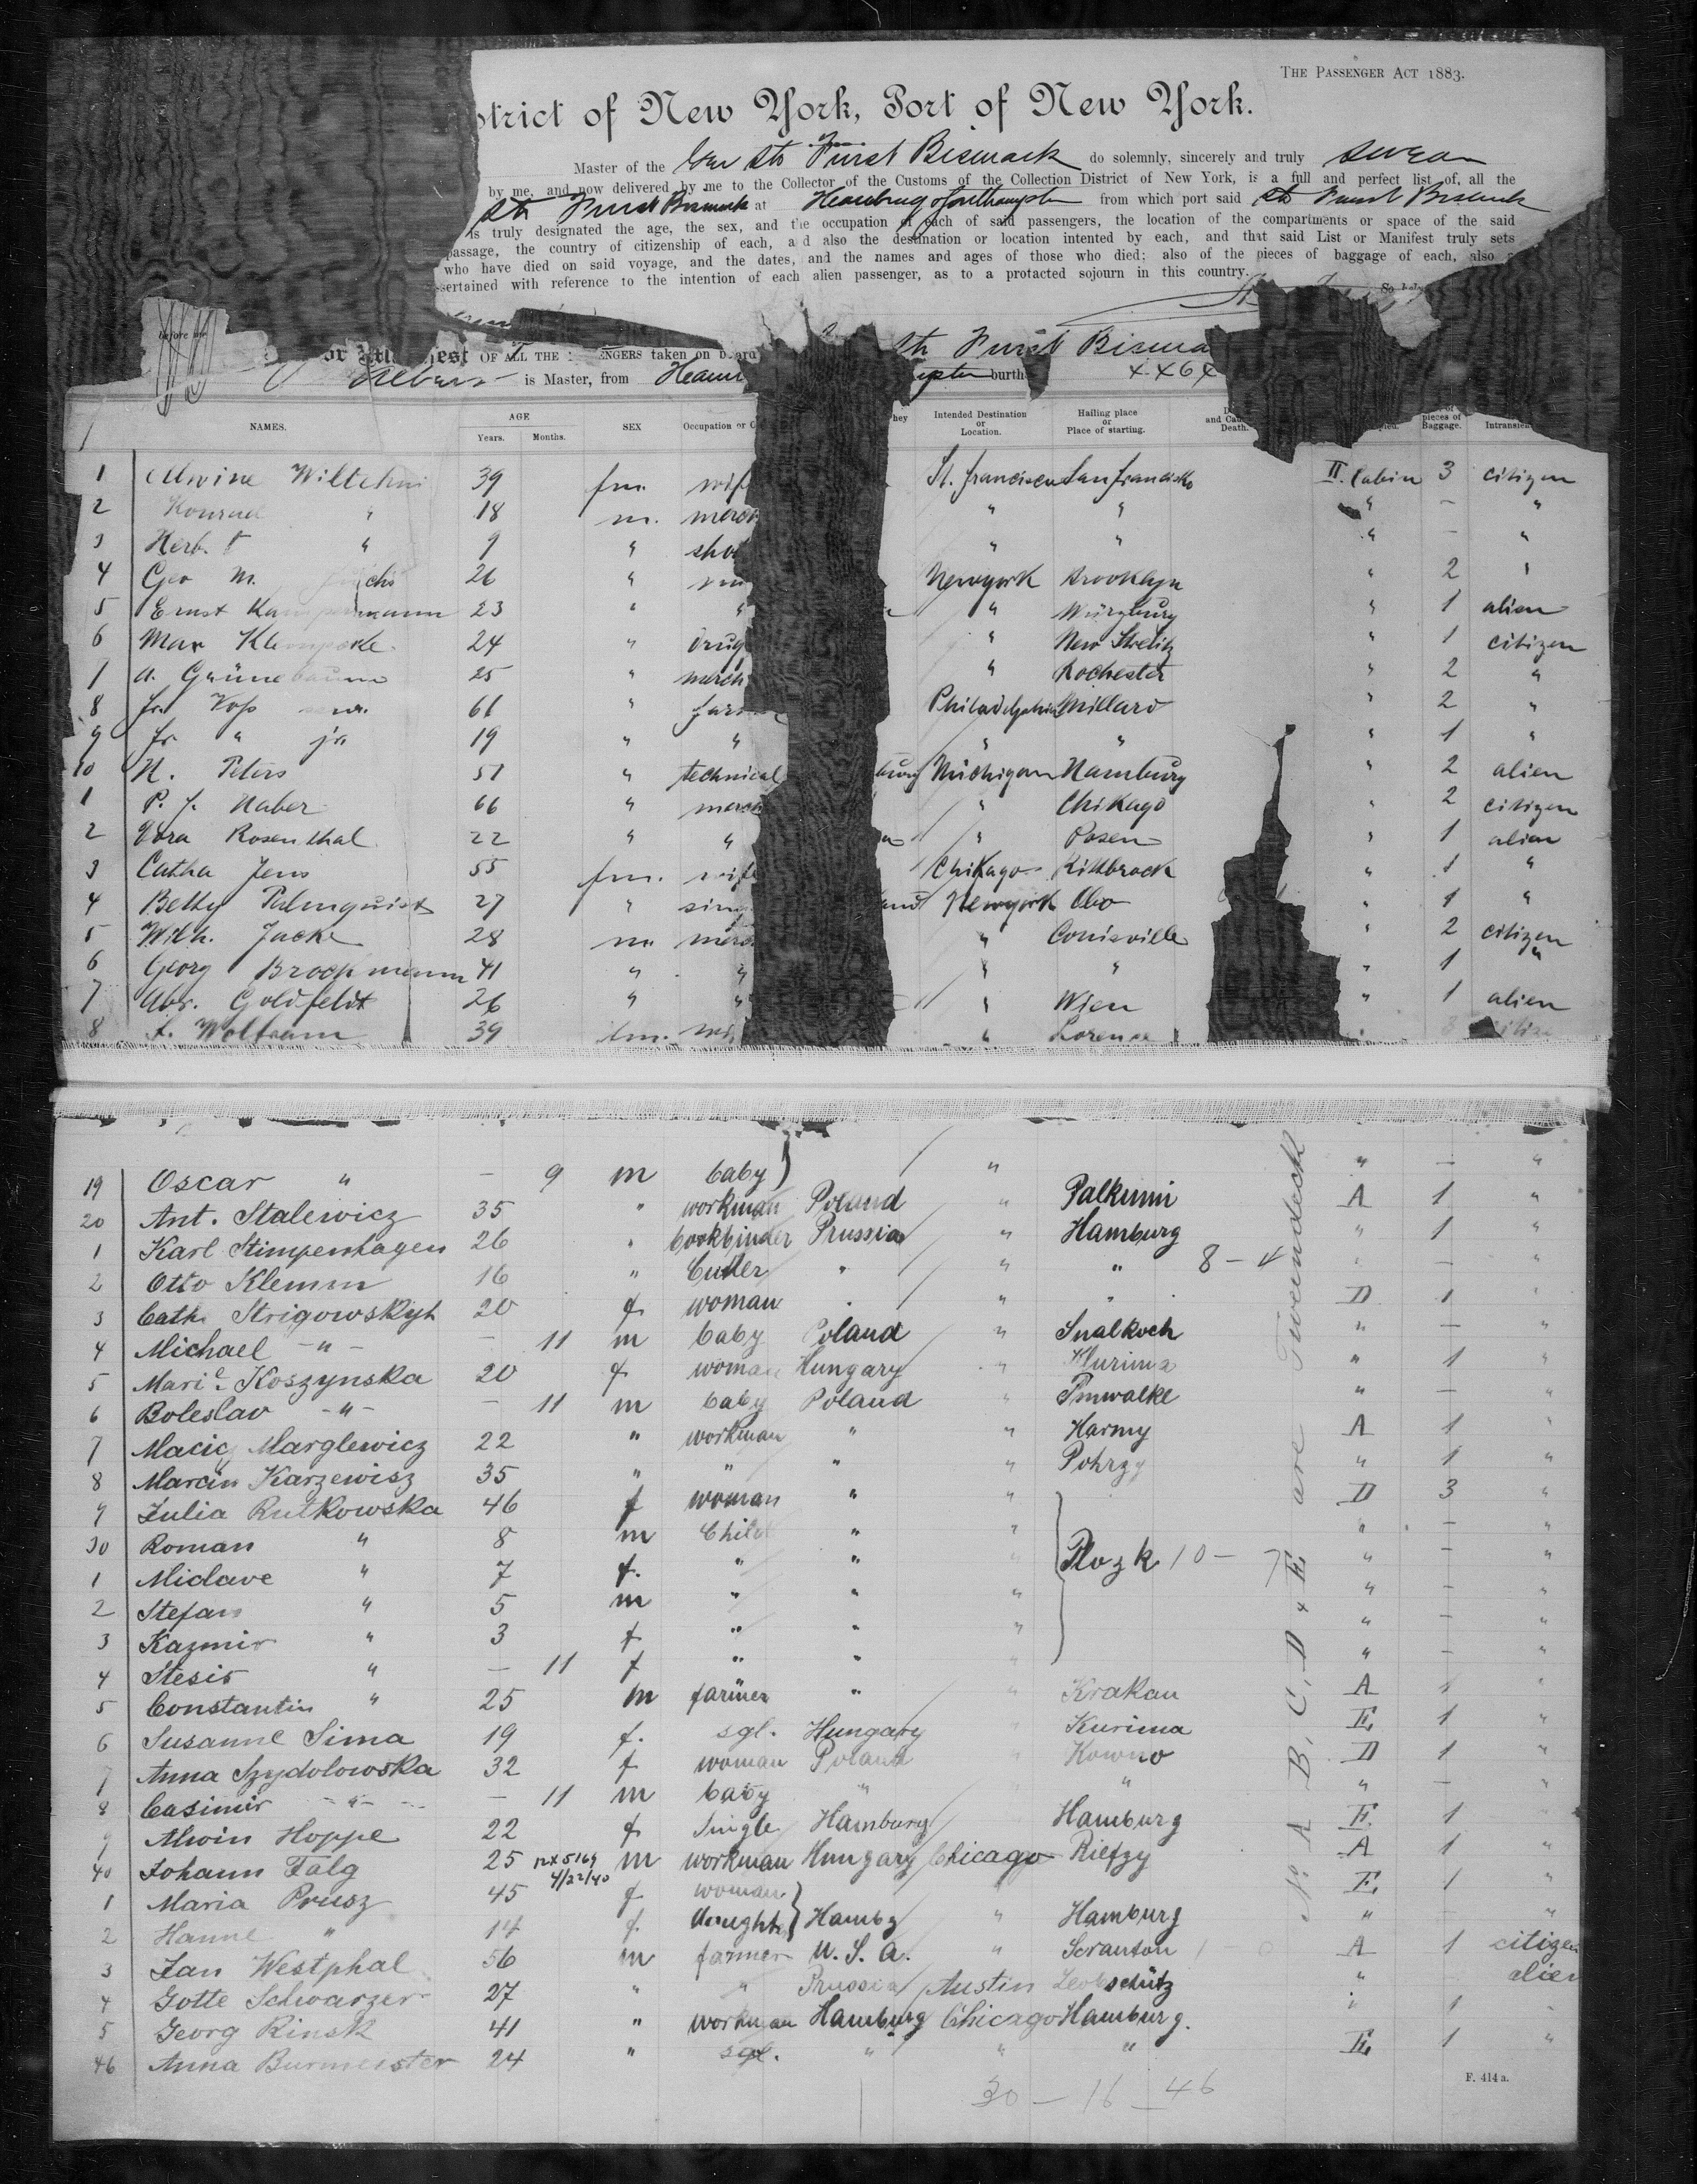 THE PASSENGER ACT 1883.
strict of New York, Port of New York.
Master of the Ger Str Fürst Bismarck do solemnly, sincerely and truly swear
by me, and now delivered by me to the Collector of the Customs of the Collection District of New York, is a full and perfect list of, all the
Str Fürst Bismarck at Hamburg Southampton from which port said Str Fürst Bismarck
is truly designated the age, the sex, and the occupation of each of said passengers, the location of the compartments or space of the said
passage, the country of citizenship of each, and also the destination or location intented by each, and that said List or Manifest truly sets
who have died on said voyage, and the dates, and the names and ages of those who died; also of the pieces of baggage of each, also
sertained with reference to the intention of each alien passenger, as to a protacted sojourn in this country.
So help
before me
OF ALL THE taken on board Str Fürst Bismar
Albers is Master, from burth
NAMES. AGE Years. Months. SEX Occupation or Intended Destination or Location. Hailing place or Place of starting. Death. pieces of Baggage.
1 Alwine 39 fm. wife San Francisko II. Cabin 3 citizen
2 Konrad " 18 m. merch " " " - "
3 " 9 " " " " - "
4 Geo M. 26 " Newyork Brooklyn " 2 "
5 Ernst Kampermann 23 " " " Würzburg " 1 alien
6 Max 24 " drug " New Strelitz " 1 citizen
7 A. Grünebaum 25 " merch " Rochester " 2 "
8 Fr. Voss 61 " farm Philadelphia Millard " 2 "
9 Fr. " jr. 19 " " " " " 1 "
10 H. Peters 51 " technical burg Michigan Hamburg " 2 alien
1 P. J. Haber 66 " merch " Chikago " 2 citizen
2 Rosenthal 22 " " " Posen " 1 alien
3 Catha Jens 55 fm. wife Chikago " 1 "
4 Betty Palmquist 27 " sing Newyork Abo " 1 "
5 Wilh. Jacke 28 m merch " Louisville " 2 citizen
6 Georg Brockmann 41 " " " " " 1 "
7 Abr. Goldfeldt 26 " " " Wien " 1 alien
8 39 fm. "
19 Oscar " - 9 m baby " " - "
20 Ant. Stalewicz 35 " workman Poland " Palkumi A 1 "
1 Karl Stimpenhagen 26 " bookbinder Prussia " Hamburg " 1 "
2 Otto Klemm 16 " " " " 8 - 4 " - "
3 Cath. Strigowskyh 20 f woman " " " D 1 "
4 Michael - " - - 11 m baby Poland " Snalkoch " - "
5 Marie Koszynska 20 f woman Hungary " Klurima " 1 "
6 Boleslav - " - - 11 m baby Poland " " - "
7 Marglewicz 22 " workman " " Harmy A 1 "
8 Marcin Karzewisz 35 " " " " Pohrzy " 1 "
9 Julia Rutkowska 46 f woman " " D 3 "
30 Roman " 8 m Child " " " - "
1 Miclave " 7 f. " " " Plozk 10 - 7 " - "
2 Stefan " 5 m " " " " - "
3 Kazmir " 3 f " " " " - "
4 Stesis " - 11 f " " " " - "
5 Constantin " 25 m farmer " " Krakau A 1 "
6 Susanne Sima 19 f. sgl. Hungary " Kurima E 1 "
7 Anna Szydolowska 32 f woman Poland " Kowno D 1 "
8 Casimir - " - - 11 m baby " " " " - "
9 Alwin Hoppe 22 f Single Hamburg Hamburg E. 1 "
40 Johann Falg 25 m workman Hungary Chicago Rietzy A 1 "
4/22/40
1 Maria Prusz 45 f woman E. 1 "
2 Hanne " 14 f. Hambg " Hamburg " - "
3 Jan Westphal 56 m farmer U. S. A. " Scranton 1 - 0 A 1 citizen
4 Gotte Schwarzer 27 " " Prussia Austin Leobschütz " alien
5 Georg Rinsk 41 " workman Hamburg Chicago Hamburg. " 1 "
46 Anna Burmeister 24 " sgl. " " " E. 1 "
No A B, C, D & E are Tweendeck
30 - 16 - 46
F. 414 a.